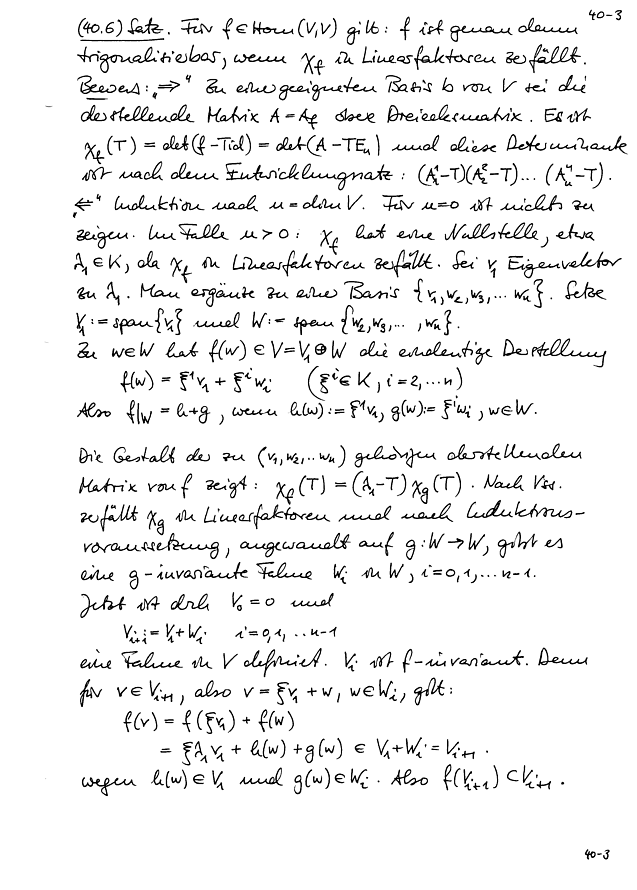 40-3
(40.6) Satz. Für f ∈ Hom(V,V) gilt: f ist genau dann
trigonalisierbar, wenn χ_f in Linearfaktoren zerfällt.
Beweis: „⇒“ Zu einer geeigneten Basis b von V sei die
darstellende Matrix A = A_f obere Dreiecksmatrix. Es ist
χ_f(T) = det(f - Tid) = det(A - TE_n) und diese Determinante
ist nach dem Entwicklungssatz: (A^1_1 - T)(A^2_2 - T)... (A^n_n - T).
„⇐“ Induktion nach n = dim V. Für n=0 ist nichts zu
zeigen. Im Falle n > 0: χ_f hat eine Nullstelle, etwa
λ_1 ∈ K, da χ_f in Linearfaktoren zerfällt. Sei v_1 Eigenvektor
zu λ_1. Man ergänze zu einer Basis {v_1, w_2, w_3, ... w_n}. Setze
V_1 := span{v_1} und W := span{w_2, w_3, ..., w_n}.
Zu w∈W hat f(w) ∈ V = V_1 ⊕ W die eindeutige Darstellung
f(w) = ξ^1 v_1 + ξ^i w_i (ξ^i ∈ K, i = 2, ... n)
Also f|_W = h+g, wenn h(w) := ξ^1 v_1, g(w) := ξ^i w_i, w∈W.
Die Gestalt der zu (v_1, w_2, .. w_n) gehörigen darstellenden
Matrix von f zeigt: χ_f(T) = (λ_1 - T) χ_g(T). Nach Vss.
zerfällt χ_g in Linearfaktoren und nach Induktions-
voraussetzung, angewandt auf g: W → W, gibt es
eine g-invariante Fahne W_i in W, i = 0, 1, ... n-1.
Jetzt ist durch V_0 = 0 und
V_{i+1} := V_1 + W_i i = 0, 1, .. n-1
eine Fahne in V definiert. V_i ist f-invariant. Denn
für v ∈ V_{i+1}, also v = ξv_1 + w, w∈W_i, gilt:
f(v) = f(ξv_1) + f(w)
= ξλ_1v_1 + h(w) + g(w) ∈ V_1 + W_i = V_{i+1}.
wegen h(w) ∈ V_1 und g(w) ∈ W_i. Also f(V_{i+1}) ⊂ V_{i+1}.
40-3